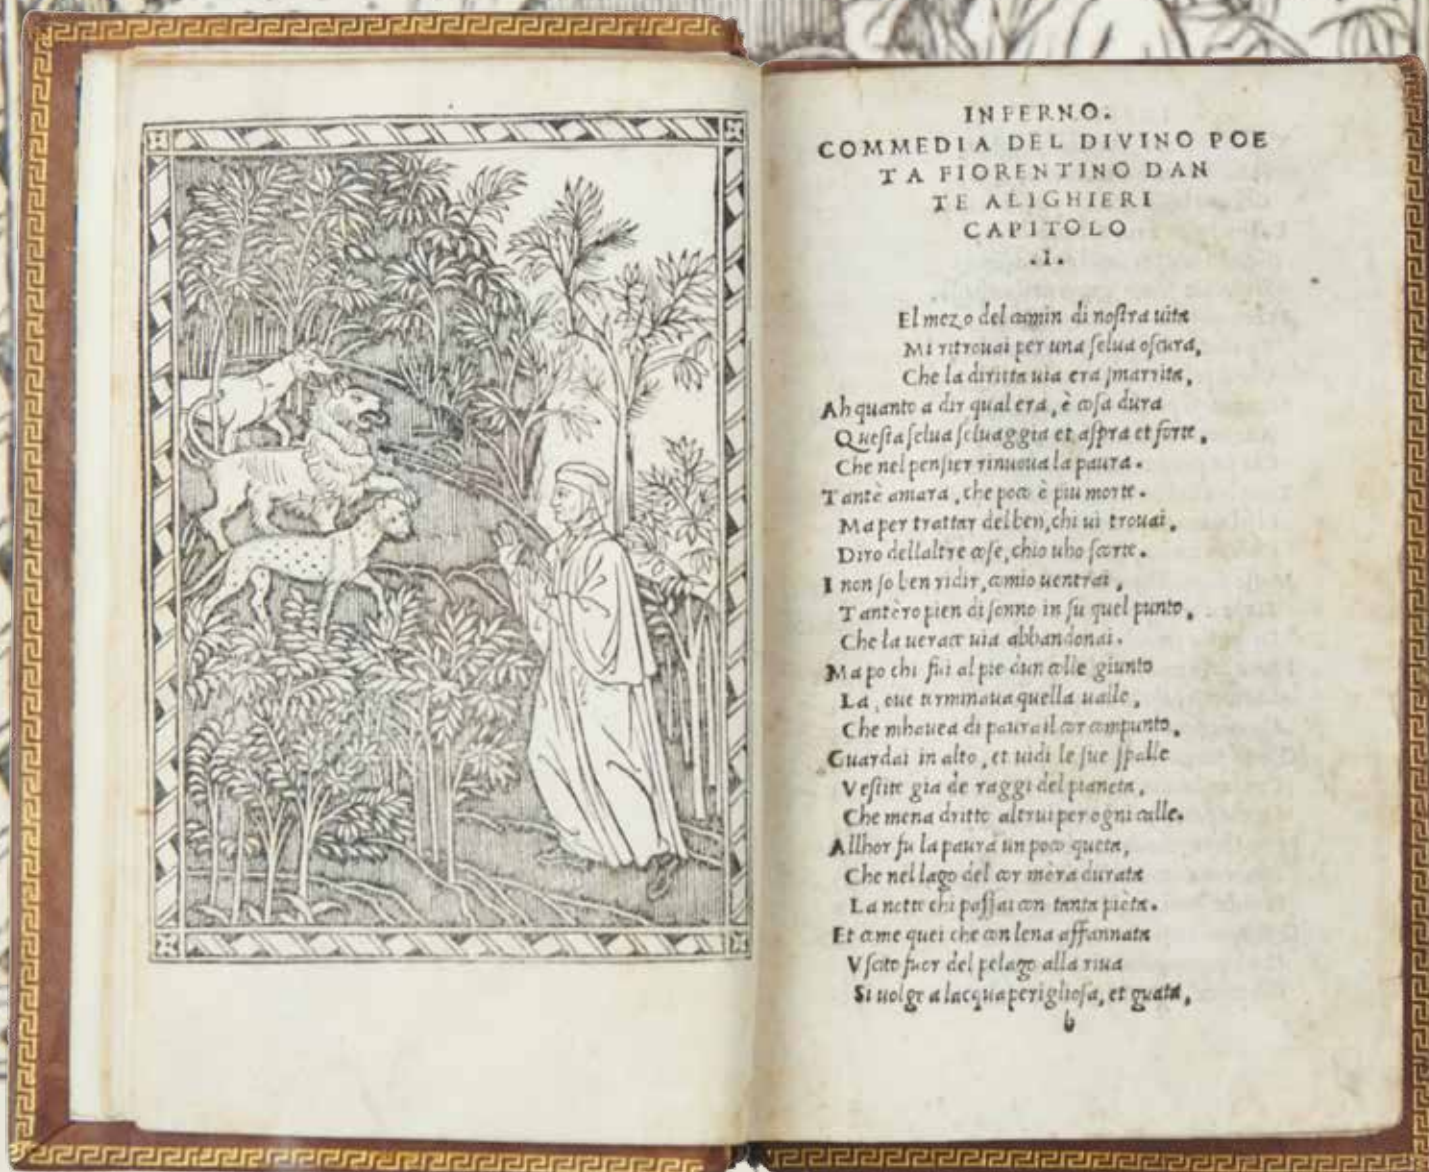 INFERNO.
COMMEDIA DEL DIVINO POE
TA FIORENTINO DAN
TE ALIGHIERI
CAPITOLO
.I.
El mezo del camin di nostra uita
Mi ritrouai per una selua oscura,
Che la diritta uia era smarrita,
Ah quanto a dir qual era, è cosa dura
Questa selua seluaggia et aspra et forte,
Che nel pensier rinuoua la paura.
Tantè amara, che poco è piu morte.
Ma per trattar del ben, chi ui trouai,
Diro dellaltre cose, chio uho scorte.
I non so ben ridir, comio uentrai,
Tantèro pien di sonno in su quel punto,
Che la uerace uia abbandonai.
Ma po chi fui al pie dun colle giunto
La, oue terminaua quella ualle,
Che mhauea di paura il cor compunto,
Guardai in alto, et uidi le sue spalle
Vestite gia de raggi del pianeta,
Che mena dritto altrui per ogni calle.
Allhor fu la paura un poco queta,
Che nel lago del cor mèra durata
La notte chi passai con tanta pièta.
Et come quei che con lena affannata
Vscito fuor del pelago alla riua
Si uolge a lacqua perigliosa, et guata,
b